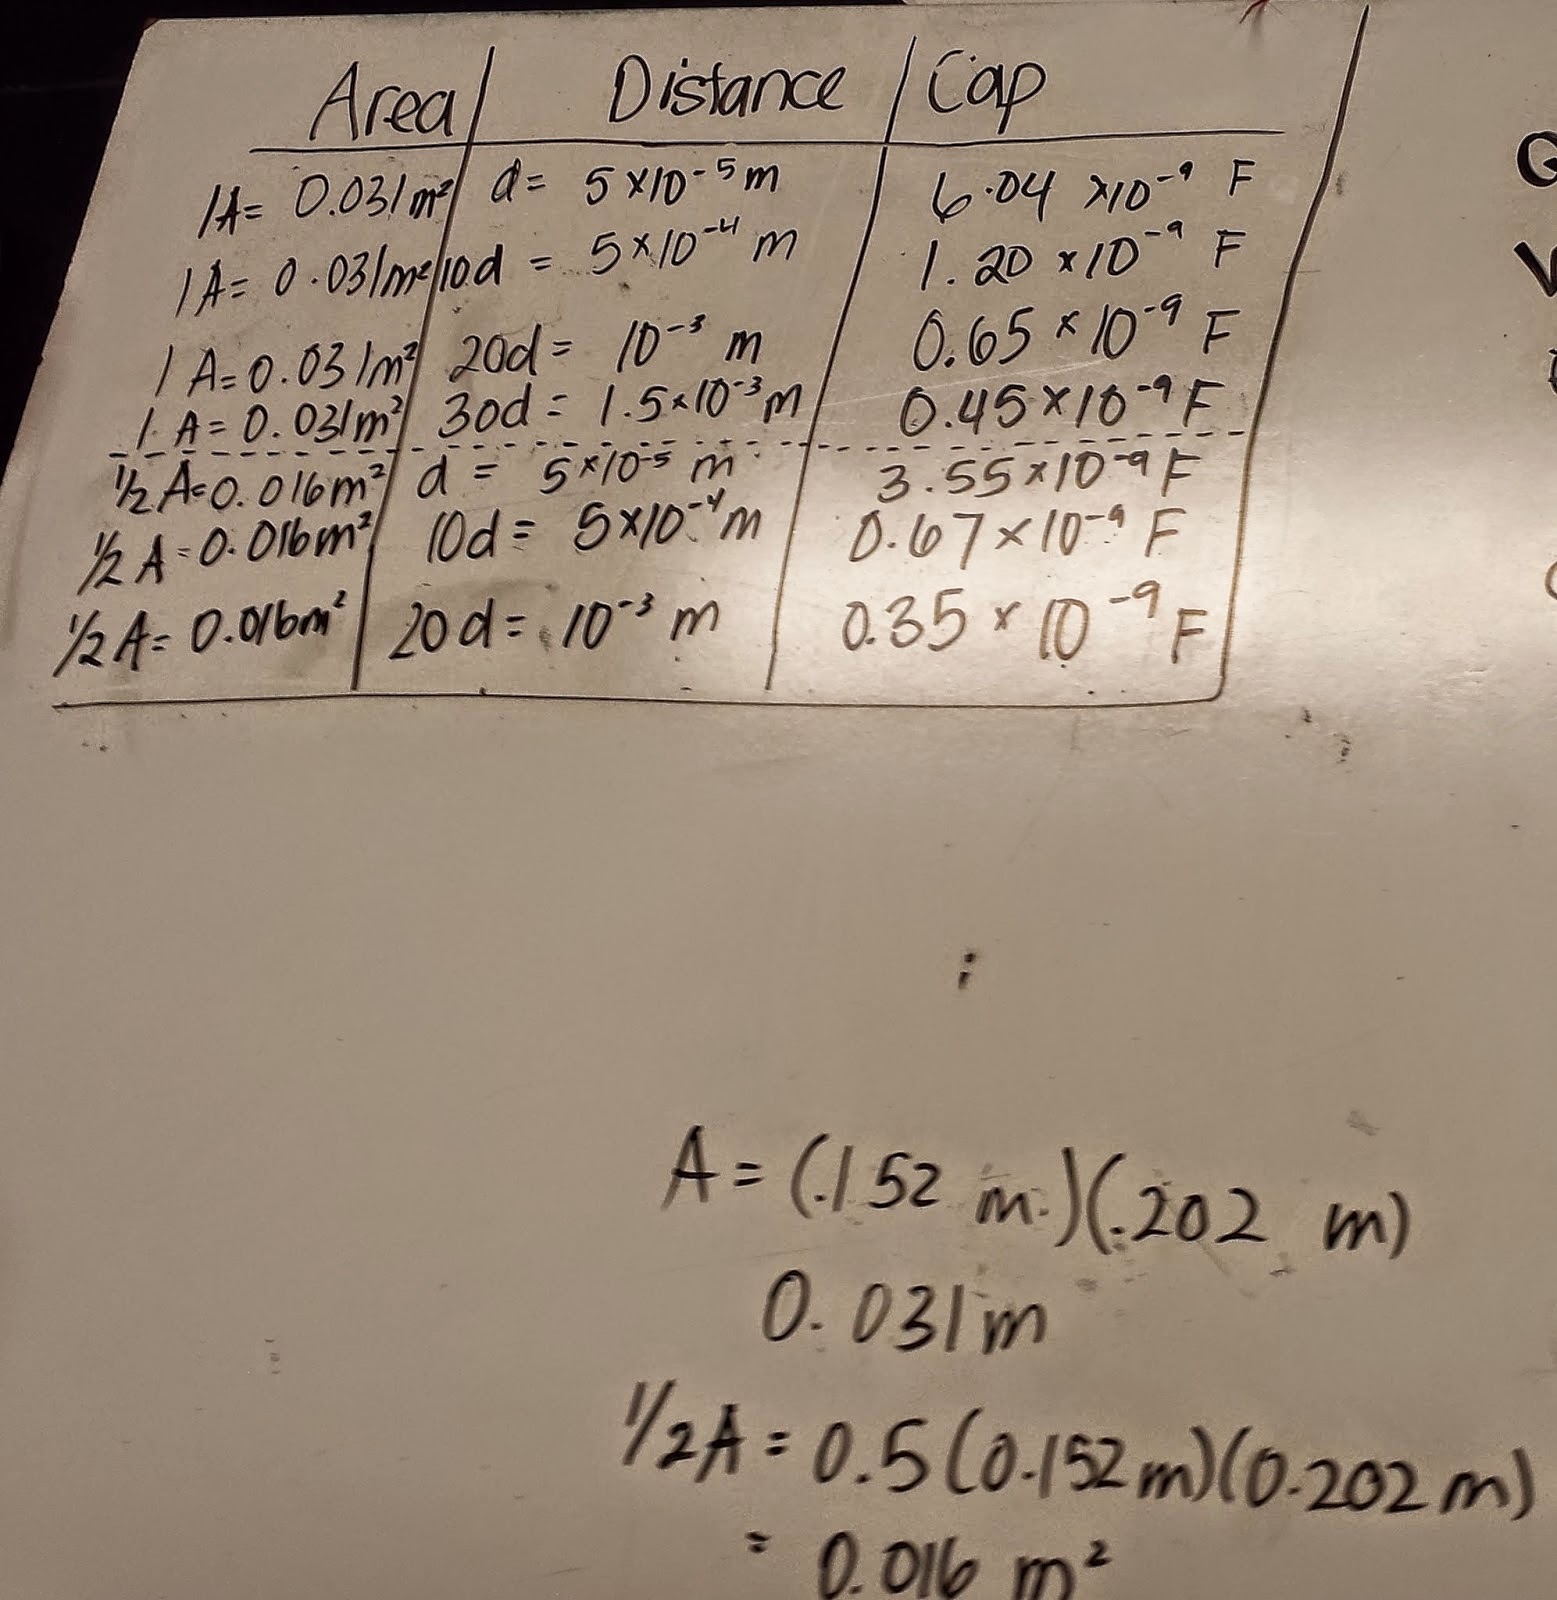 Area Distance Cap
1A= 0.031m² d= 5×10⁻⁵m 6.04 ×10⁻⁹ F
1A= 0.031m² 10d = 5×10⁻⁴ m 1.20 ×10⁻⁹ F
1A=0.031m² 20d= 10⁻³ m 0.65×10⁻⁹ F
1.A=0.031m² 30d= 1.5×10⁻³m 0.45×10⁻⁹F
½A=0.016m² d = 5×10⁻⁵ m 3.55×10⁻⁹F
½A=0.016m² 10d= 5×10⁻⁴m 0.67×10⁻⁹ F
½A=0.016m² 20d= 10⁻³ m 0.35×10⁻⁹ F
A=(.152 m.)(.202 m)
0.031m
½A=0.5(0.152m)(0.202m)
= 0.016 m²